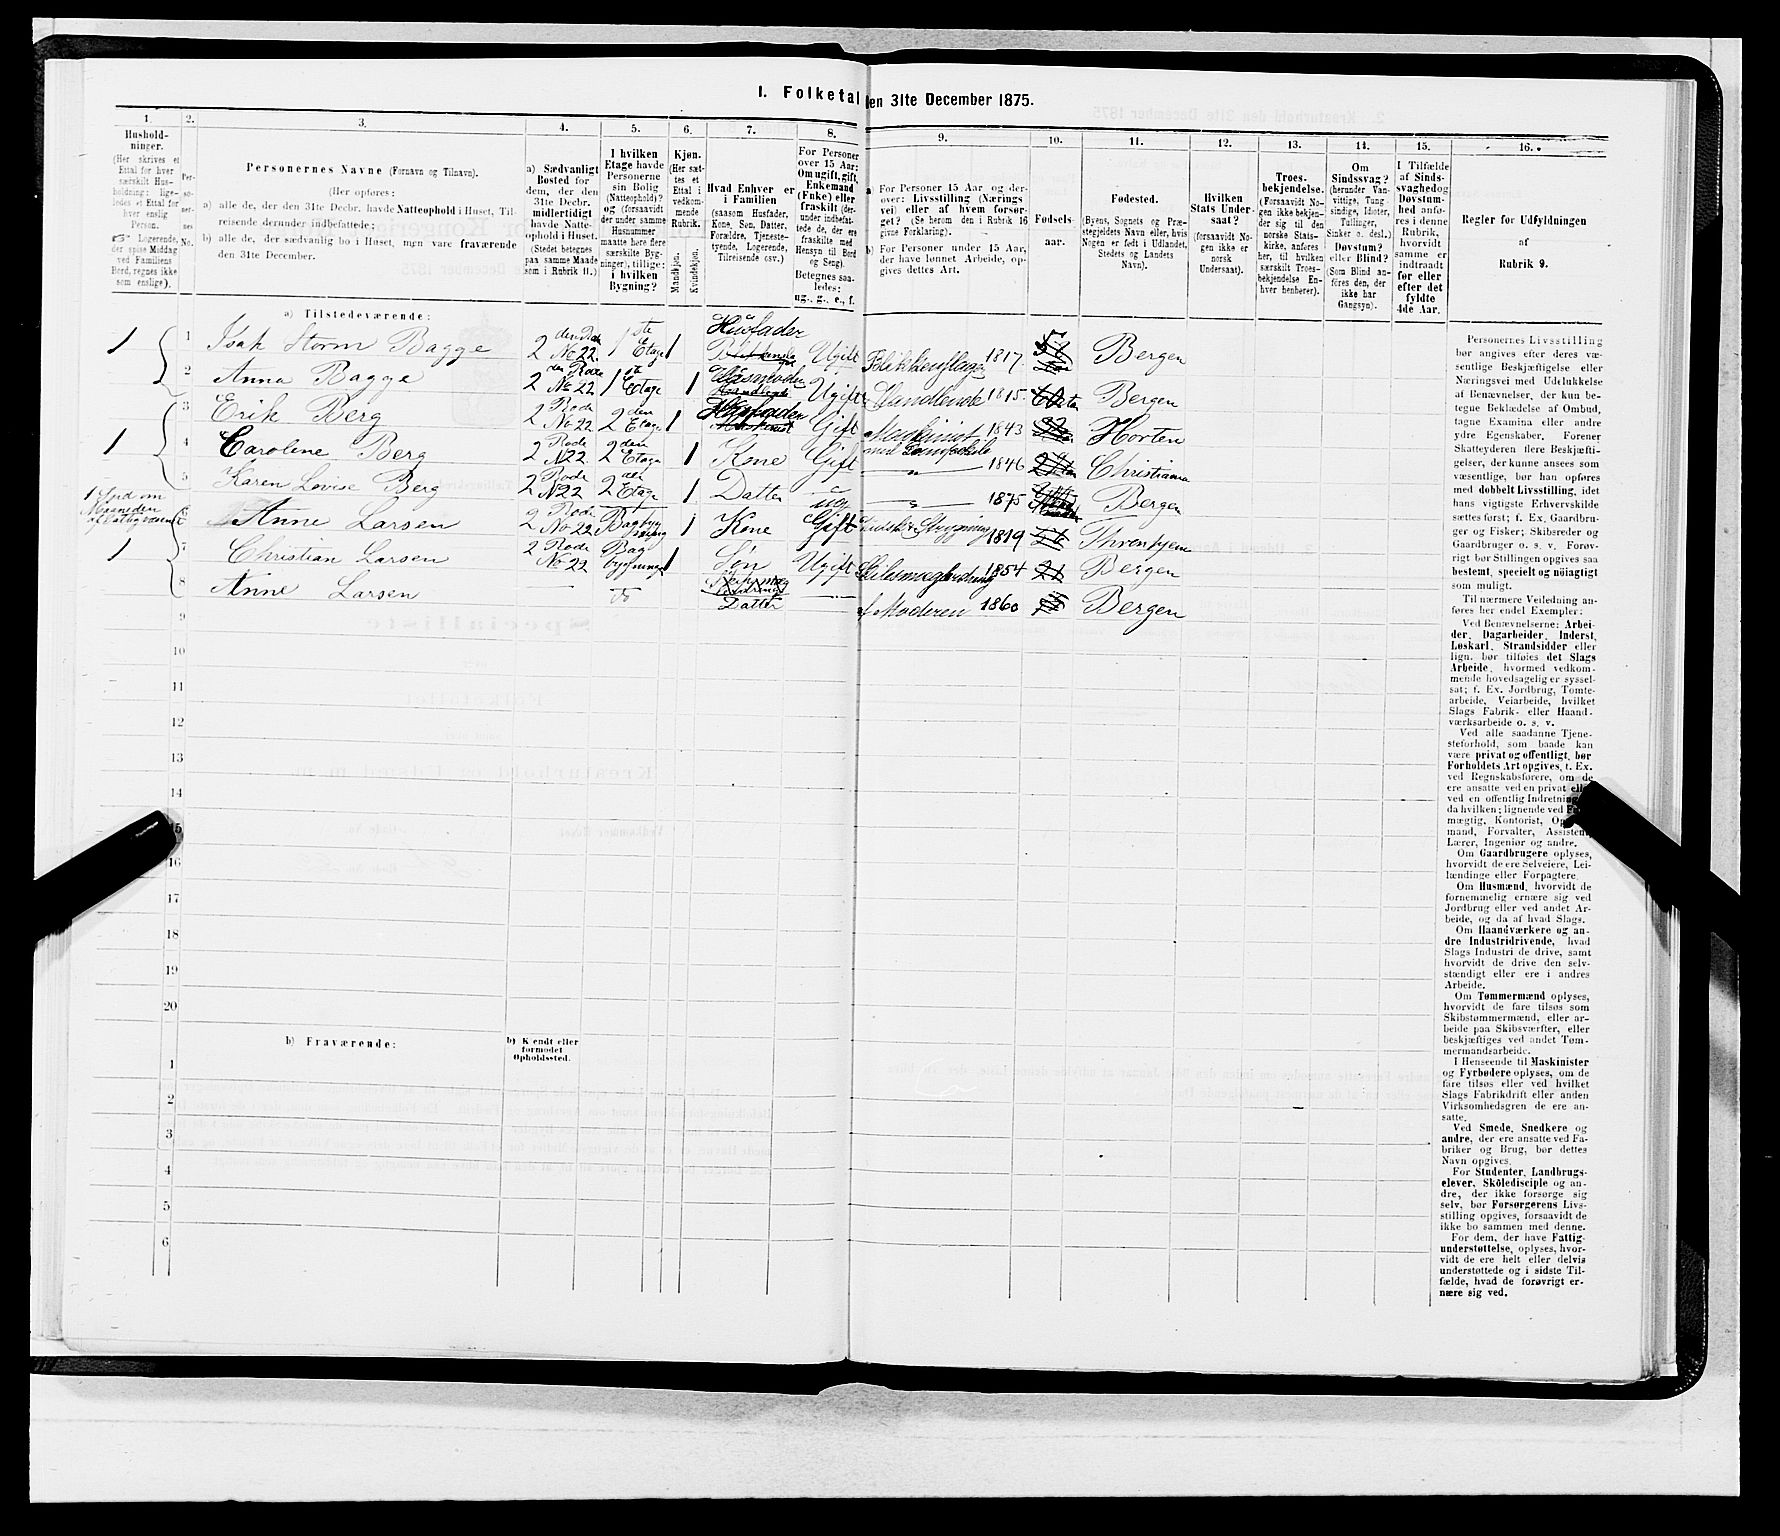 I. Folketal den 31te December 1875.
1. 2. 3. 4. 5. 6. 7. 8. 9. 10. 11. 12. 13. 14. 15. 16.
Hushold-
ninger.
(Her skrives et
Ettal for hver
særskilt Hus-
holdning; lige-
ledes et Ettal for
hver enslig
Person.
Logerende,
der spise Middag
ved Familiens
Bord, regnes ikke
som enslige).
Per-
so-
ner-
nes
No.
Personernes Navne (Fornavn og Tilnavn).
(Her opføres:
a) alle de, der den 31te Decbr. havde Natteophold i Huset, Til-
reisende derunder indbefattede;
b) alle de, der sædvanlig bo i Huset, men vare fraværende
den 31te December.
a) Sædvanligt
Bosted for
dem, der den
31te Decbr.
midlertidigt
havde Natte-
ophold i Huset.
(Stedet betegnes
paa samme Maade
som i Rubrik 11.)
I hvilken
Etage havde
Personerne
sin Bolig
(Natteophold)?
og (forsaavidt
der under samme
Husnummer
maatte høre flere
særskilte Byg-
ninger), tillige:
i hvilken
Bygning?
Kjøn.
(Her sæt-
tes et
Ettal i
vedkom-
mende
Rubrik.
Mandkjøn.
Kvindekjøn.
Hvad Enhver er
i Familien
(saasom Husfader,
Kone, Søn, Datter,
Forældre, Tjeneste-
tyende, Logerende,
Tilreisende osv.)
For Personer
over 15 Aar:
Om ugift, gift,
Enkemand
(Enke) eller
fraskilt (der-
under indbefat-
tede de, der ere
fraskilte med
Hensyn til Bord
og Seng).
Betegnes saa-
ledes:
ug., g., e., f.
a) For Personer 15 Aar og der-
over: Livsstilling (Nærings-
vei) eller af hvem forsør-
get? (Se herom den i Rubrik 16
givne Forklaring).
b) For Personer under 15 Aar,
der have lønnet Arbeide, op-
gives dettes Art.
Fødsels-
aar.
Fødested.
(Byens, Sognets og Præ-
stegjeldets Navn eller, hvis
Nogen er født i Udlandet,
Stedets og Landets
Navn).
Hvilken
Stats Under-
saat?
(forsaavidt No-
gen ikke er
norsk
Undersaat).
Troes-
bekjendelse.
(Forsaavidt No-
gen ikke bekjen-
der sig til den
norske Stats-
kirke, anføres
her, til hvilken
særskilt Troes-
bekjendelse En-
hver henhører).
Om
Sindssvag?
(herunder Van-
vittige, Tung-
sindige, Idioter,
Tullinger,
Sinker o. desl.)
Døvstum?
eller Blind?
(Som Blind an-
føres den, der
ikke har
Gangsyn).
I Tilfælde
af Sinds-
svaghed og
Døvstum-
hed anfø-
res i denne
Rubrik,
hvorvidt
samme er
indtraadt
før eller
efter det
fyldte
4de Aar.
Regler for Udfyldningen
af
Rubrik 9.
a) Tilstedeværende:
1 1 Isak Storm Bagge 2 den Rode No 22. 1ste Etage 1 Husfader Ugift Blikkenslager 1817 Bergen
2 Anna Bagge 2 den Rode No 22 1ste Etage 1 Ugift Handlende 1815. Bergen
3 Erik Berg 2 Rode No 22. 2den Etage 1 Husfader Gift Maskinist 1843 Horten
1 4 Carolene Berg 2 Rode N 22. 2den Etage 1 Kone Gift „ 1846 Christiania
5 Karen Lovise Berg 2 Rode N 22 2 Etage 1 Datter „ 1875 Bergen
6 Anne Larsen 2 Rode No 22 1 Kone Gift 1819 Thronhjem
1 7 Christian Larsen 2 Rode No 22 Bagbygningen 1 Søn Ugift 1854 Bergen
8 Anne Larsen Do Datter af Moderen 1860 Bergen
9
10
11
12
13
14
16
17
18
19
20
b) Fraværende:
b) Kjendt eller
formodet
Opholdssted.
1
2
3
4
5
6
Personernes Livsstilling
bør angives efter deres væ-
sentlige Beskjæftigelse eller
Næringsvei med Udelukkelse
af Benævnelser, der kun be-
tegne Beklædelse af Ombud,
tagne Examina eller andre
ydre Egenskaber. Forener
Skatteyderen flere Beskjæfti-
gelser, der kunne ansees som
væsentlige, bør han opføres
med dobbelt Livsstilling, idet
hans vigtigste Erhvervskilde
sættes først; f. Ex. Gaardbru-
ger og Fisker; Skibsreder og
Gaardbruger o. s. v. Forøv-
rigt bør Stillingen opgives saa
bestemt, specielt og nöiagtigt
som muligt.
Til nærmere Veiledning an-
føres her endel Exempler:
Ved Benævnelserne: Arbei-
der, Dagarbeider, Inderst,
Løskarl, Strandsidder eller
lign. bør tilføies det Slags
Arbeide, hvormed vedkom-
mende hovedsagelig er syssel-
sat; f. Ex. Jordbrug, Tomte-
arbeide, Veiarbeide, hvilket
Slags Fabrik- eller Haand-
værksarbeide o. s. v.
Ved alle saadanne Tjene-
steforhold, som baade kan
være privat og offentligt, bør
Forholdets Art opgives, t. Ex.
ved Regnskabsførere, om de
ere ansatte ved en privat eller
ved en offentlig Indretning og
da hvilken; lignende ved
mægtig, Kontorist, Op-
mand, Forvalter, Assistent,
Lærer, Ingeniør og andre.
Om Gaardbrugere oplyses,
hvorvidt de ere Selveiere, Lei-
lændinge eller Forpagtere.
Om Husmænd, hvorvidt de
fornemmelig ernære sig ved
Jordbrug eller ved andet Ar-
beide, og da af hvad Slags.
Om Haandværkere og an-
dre Industridrivende, hvad
Slags Industri de drive, samt
hvorvidt de drive den selv-
stændigt eller ere i andres
Arbeide.
Om Tømmermænd oplyses,
hvorvidt de fare tilsøs som
Skibstømmermænd, eller ar-
beide paa Skibsværfter, eller
beskjæftiges ved andet Tøm-
mermandsarbeide.
I Henseende til Maskinister
og Fyrbødere oplyses, om de
fare tilsøs eller ved hvilket
Slags Fabrikdrift eller anden
Virksomhedsgren de ere an-
satte.
Ved Smede, Snedkere og
andre, der ere ansatte ved Fa-
briker og Brug, bør dettes
Navn opgives.
For Studenter, Landbrugs-
elever, Skoledisciple og an-
dre, der ikke forsørge sig
selv, bør Forsørgerens Livs-
stilling opgives, forsaavidt de
ikke bo sammen med denne.
For dem, der have Fattig-
understøttelse, oplyses, hvor-
vidt de ere helt eller delvis
understøttede og i sidste Til-
fælde, hvad de forøvrigt er-
nære sig ved.